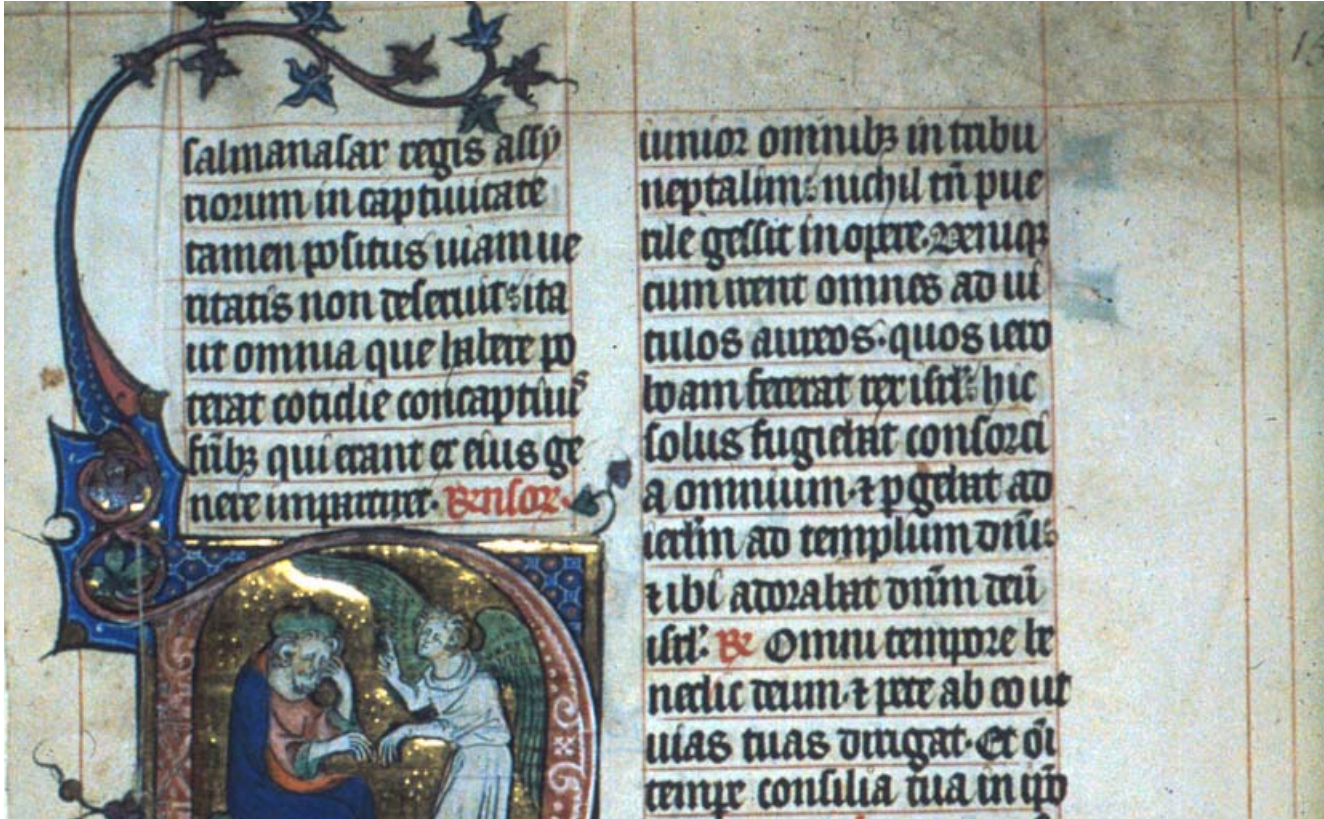 salmanasar regis assy
riorum in captiuitate
tamen positus uiam ue
ritatis non deseruit: ita
ut omnia que habere po
terat cotidie concaptiuis
frībꝫ qui erant ex eius ge
nere impartiret.
iunior omnibꝫ in tribu
neptalim: nichil tn̄ pue
rile gessit in opere. Deniqꝫ
cum irent omnes ad ui
tulos aureos. quos iero
boam fecerat rex isrl̓: hic
solus fugiebat consorci
a omnium. ⁊ pgebat ad
ierlm̄ ad templum dn̄i:
⁊ ibi adorabat dn̄m deū
isrl̓. R̄ Omni tempore be
nedic deum. ⁊ pete ab eo ut
uias tuas dirigat. Et oī
tempe consilia tua in ip̄o